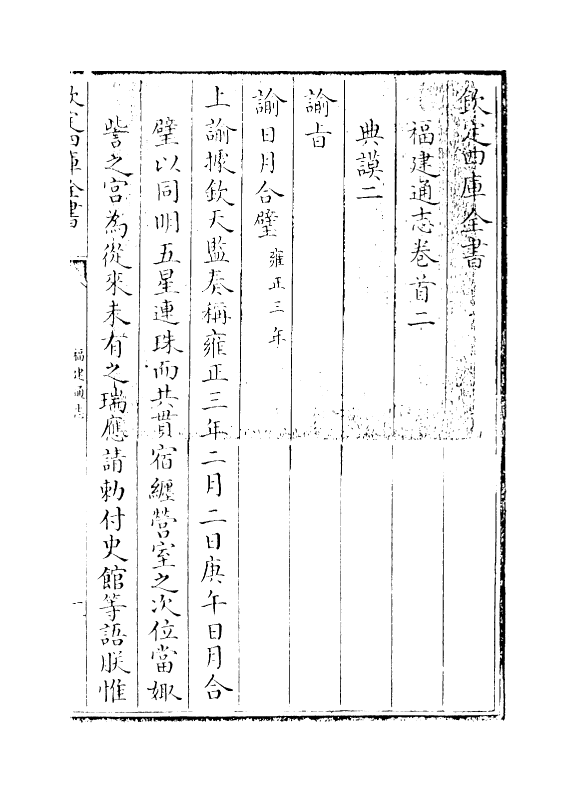 欽定四庫全書
福建通志卷首二
典謨二
諭旨
諭日月合璧雍正三年
上諭據欽天監奏稱雍正三年二月二日庚午日月合
璧以同明五星連珠而共貫宿纏營室之次位當娵
訾之宫為從來未有之瑞應請勅付史館等語朕惟
欽定四庫全書
福建通志
一